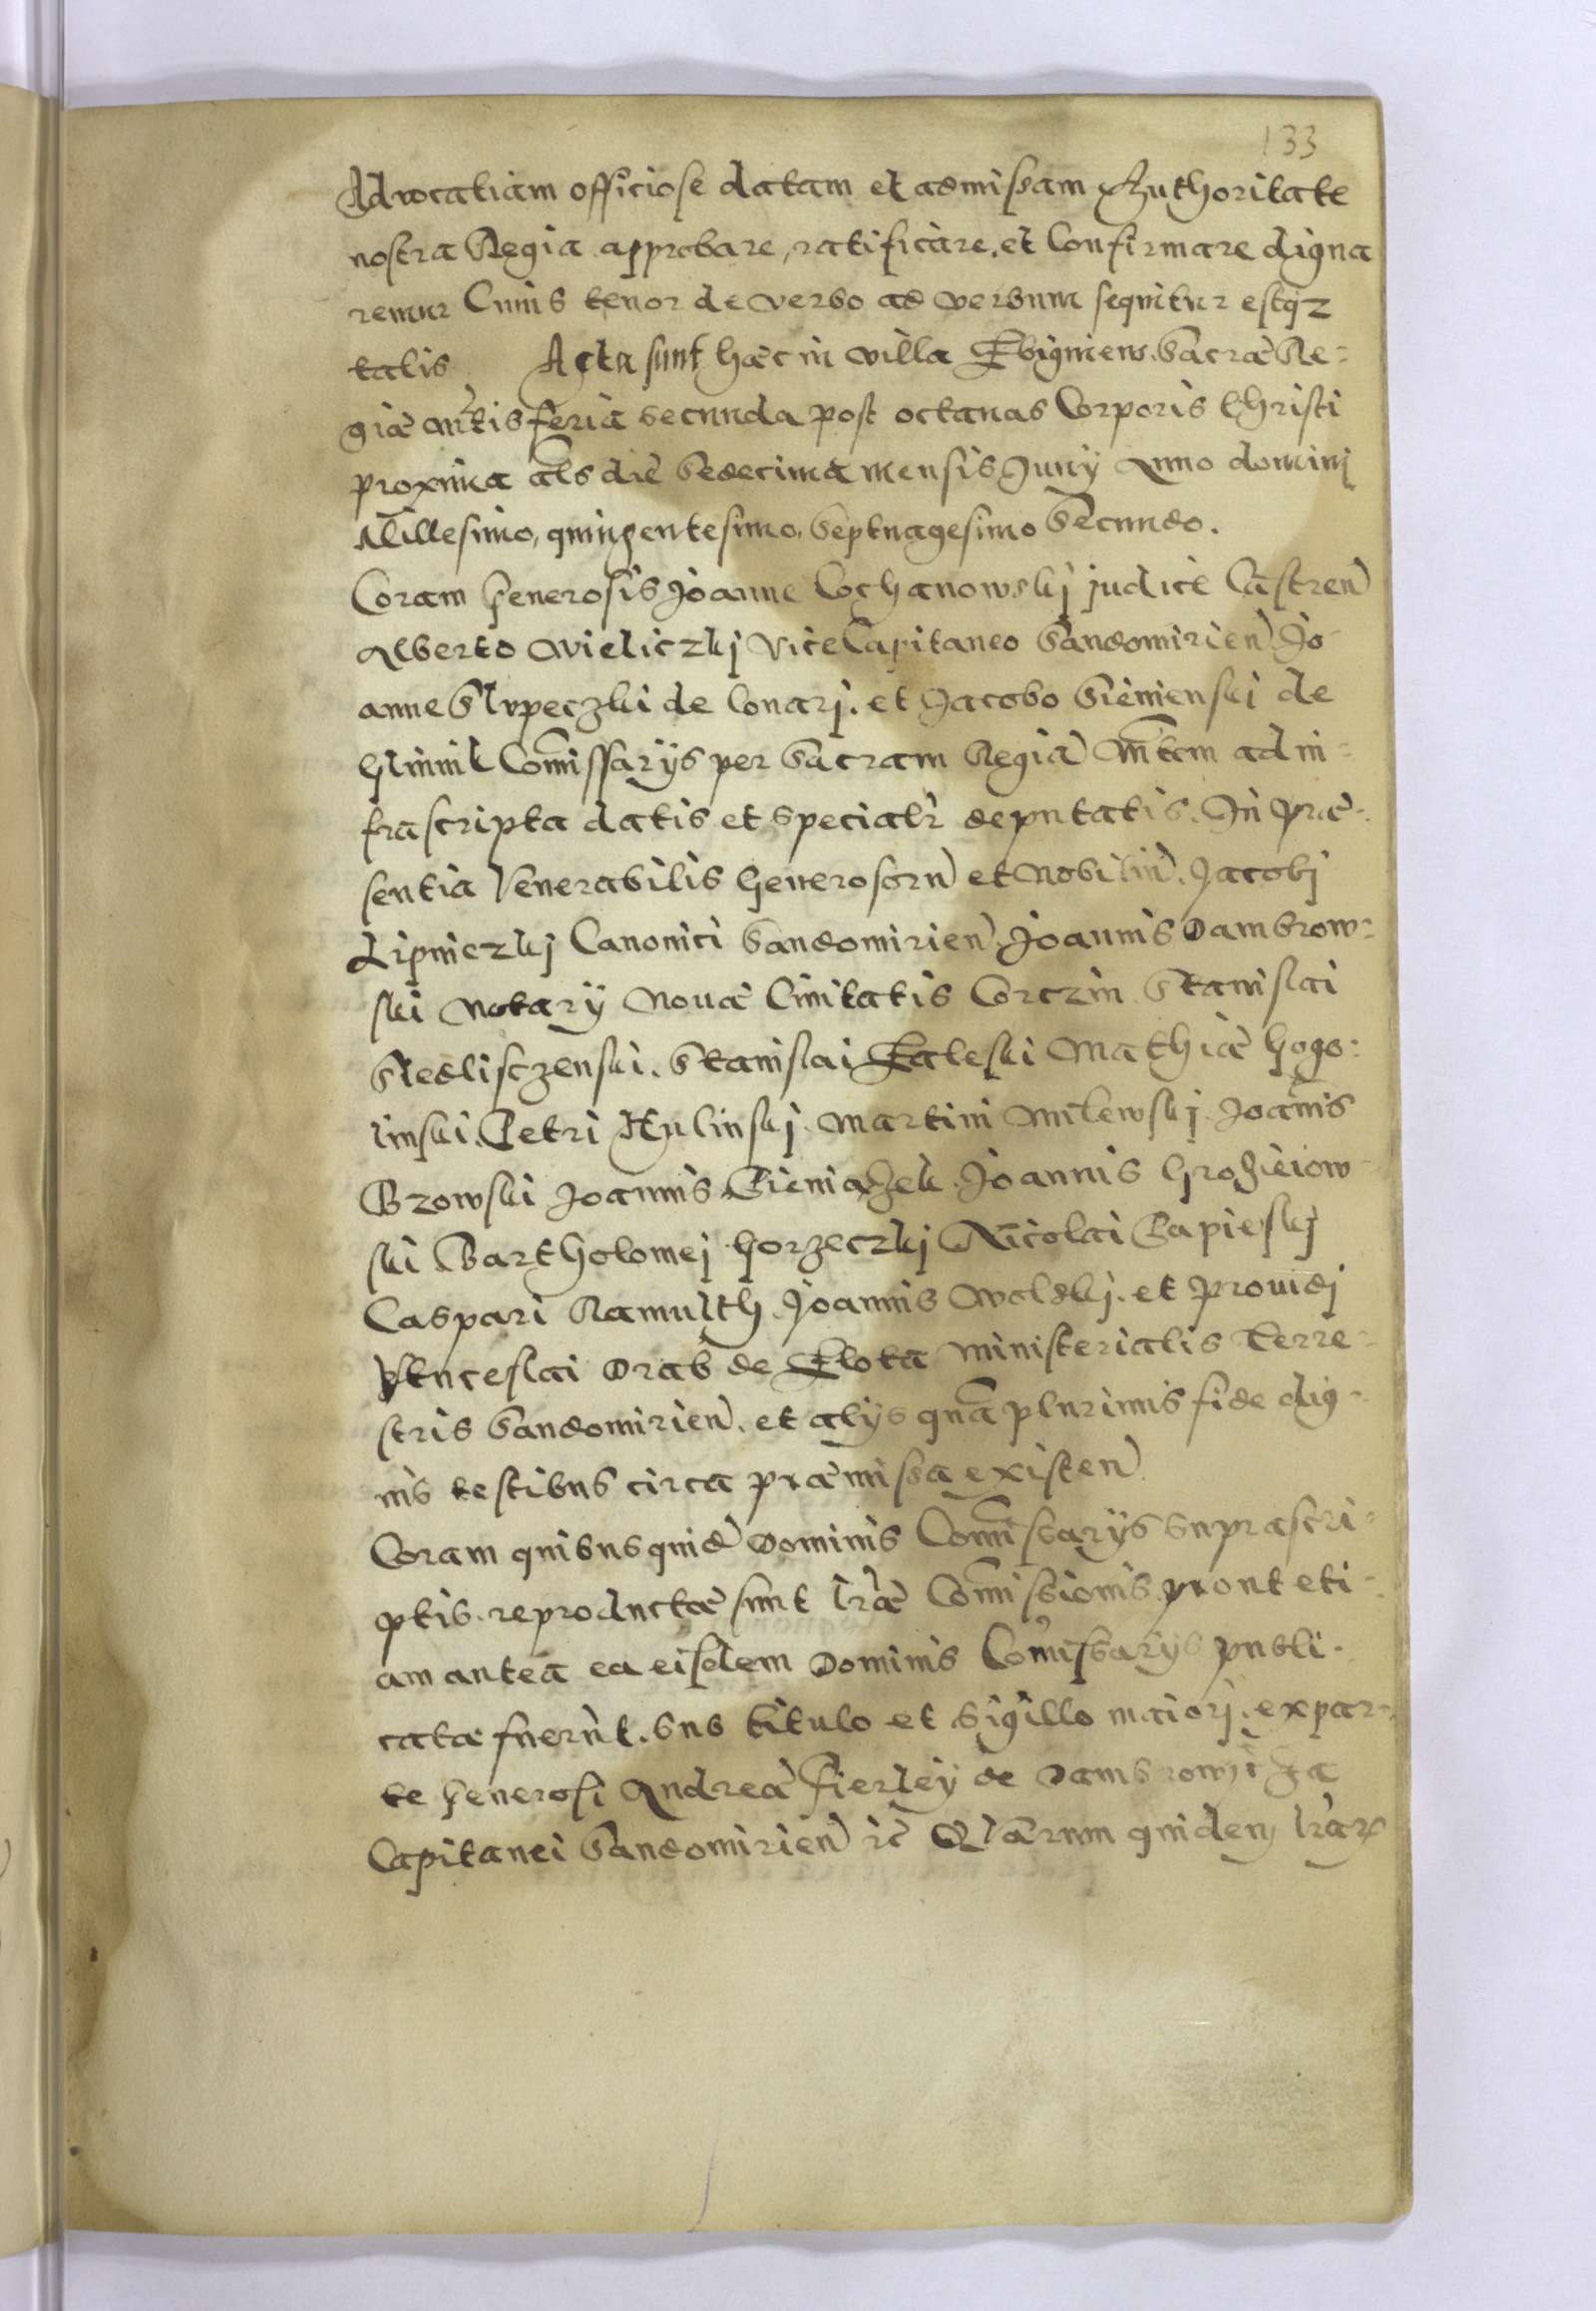 133
Advocatiam officiose datam et admissam Authoritate
nostra Regia approbare, ratificare. et Confirmare digna
remur Cuius tenor de verbo ad verbum sequitur estqz
talis Acta sunt hæc in villa Zbigniew. Sacræ Re=
giæ Mtis feria secunda post octauas Corporis Christi
proxima als die Sedecima mensis Junÿ Anno dominj
Millesimo, quingentesimo, Septuagesimo Secundo.
Coram Generosis Joanne Cochanowskj judice Castren
Alberto Wieliczkj ViceCapitaneo Sandomirien Jo
anne Slvpeczki de Conarj. et Jacobo Sienienski de
Glinnik Comissarÿs per Sacram Regiã Mtem ad in=
frascripta datis et specialr deputatis. In præ=
sentia Venerabilis Generosorũ et Nobiliũ. Jacobj
Lipniczkj Canonici Sandomirien. Joannis Dambrow=
ski Notarÿ Nouæ Ciuitatis Corczin Stanislai
Siedlisczenski. Stanislai Zaleski Mathiæ Gogo=
linski. Petri Kulinskj. Martini Milewskj. Joãnis
Bzowski Joannis Pieniążek. Joannis Groziciow=
ski Bartholomej Gorzeczkj Nicolai Papieskj
Caspari Ramulth Joannis Wolskj. et prouidj
Venceslai Drab de Zlota ministerialis terre=
stris Sandomirien. et alÿs quãplurimis fide dig=
nis testibus circa præmissa existen
Coram quibusquid Dominis Comissarÿs suprascri=
ptis. reproductæ sunt lræ Comissionis. prout eti=
am antea ea eisdem Dominis Comissarÿs publi=
cata fuerũt. sub titulo et sigillo maiorj. ex par=
te Generosi Andreæ Fierleÿ de Dambrowicza
Capitanei Sandomirien ic Quarum quidem lrar